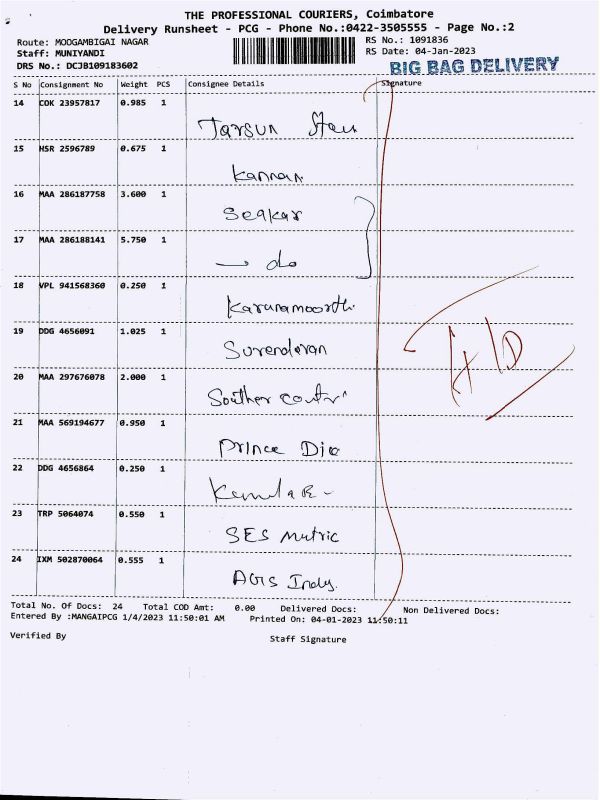 THE PROFESSIONAL COURIERS, Coimbatore
Delivery Runsheet - PCG - Phone No.:0422-3505555 - Page No.:2
Route: MOOGAMBIGAI NAGAR
RS No.: 1091836
Staff: MUNIYANDI
RS Date: 04-Jan-2023
DRS No.: DCJB109183602
BIG BAG DELIVERY
S No Consignment No Weight PCS Consignee Details Signature
14 COK 23957817 0.985 1
Tarsun
15 HSR 2596789 0.675 1
Kannan
16 MAA 286187758 3.600 1
Segkar
17 MAA 286188141 5.750 1
do
18 VPL 941568360 0.250 1
Karunamoorthi
19 DDG 4656091 1.025 1
Surendaran
H/D
20 MAA 297676078 2.000 1
Souther
21 MAA 569194677 0.950 1
Prince
22 DDG 4656864 0.250 1
23 TRP 5064074 0.550 1
SES Matric
24 IXM 502870064 0.555 1
AGS Indus.
Total No. Of Docs: 24 Total COD Amt: 0.00 Delivered Docs: Non Delivered Docs:
Entered By :MANGAIPCG 1/4/2023 11:50:01 AM Printed On: 04-01-2023 11:50:11
Verified By Staff Signature